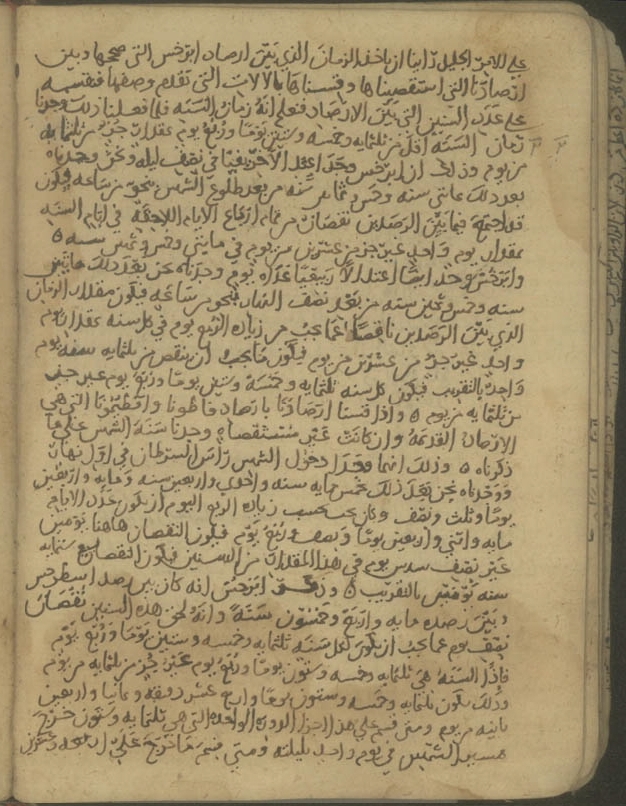 على الامر الجليل رأينا ان ناخذ الزمان الذي بين ارصاد ابرخس التي صححها وبين
ارصادنا التي استقصيناها وقسناها بالالات التي تقدم وصفها فنقسمه
على عدد السنين التي بين الارصاد فنعلم انه زمان السنه فلما فعلنا ذلك وجدنا
زمان السنه اقل من ثلثمايه وخمسه وستين يوما وربع يوم بمقدار جزء من ثلثمايه
من يوم وذلك ان ابرخس وجد اعتدالا خريفيا في نصف ليله ونحن وجدناه
بعد ذلك بمائتي سنه وخمس وثمانين سنه من بعد طلوع الشمس بنحو من ساعه فيكون
قد اجتمع فيما بين الرصدين نقصان من تمام ارباع الايام اللاحقه في ايام السنه
بمقدار يوم واحد غير جزء من عشرين من يوم في مايتي وخمس وثمنين سنه
وابرخس وجد ايضا اعتدالا ربيعيا غداه يوم ووجدناه نحن بعد ذلك مايتين
سنه وخمس وثمنين سنه من بعد نصف النهار بنحو من ساعه فيكون مقدار الزمان
الذي بين الرصدين ناقصا عما يجب من زياده الربع يوم في كل سنه بمقدار يوم
واحد غير جزء من عشرين من يوم فيكون مما يجب ان ينقص من ثلثمايه سنه يوم
واحد بالتقريب فيكون كل سنه ثلثمايه وخمسه وستين يوما وربع يوم غير جزء
من ثلثمايه من يوم واذا قسنا ارصادنا بارصاد ماطونا واقطيمونا التي هي
الارصاد القديمه وان كانت غير مستقصاه وجدنا سنه الشمس على ما
ذكرناه وذلك انهما وجدا دخول الشمس راس السرطان في اول نهار
ووجدناه نحن بعد ذلك بخمس مايه سنه واحدي واربعين سنه ومايه واربعين
يوما وثلث ونصف وكان يجب بحسب زياده الربع اليوم ان يكون عدد الايام
مايه واثني واربعين يوما ونصف وربع يوم فيكون النقصان هاهنا يومين
غير نصف سدس يوم في هذا المقدار من السنين فيكون النقصان مع ستمايه
سنه يومين بالتقريب وذكر ابرخس انه كان بين رصد ارسطرخس
وبين رصده مايه واربع وخمسون سنه وانه لحق هذه السنين نقصان
نصف يوم عما يجب ان يكون لكل سنه ثلثمايه وخمسه وستين يوما وربع يوم
فاذا السنه هي ثلثمايه وخمسه وستون يوما وربع يوم غير جزء من ثلثمايه من يوم
وذلك يكون ثلثمايه وخمسه وستون يوما واربع عشر دقيقه وثمانيا واربعين
ثانيه من يوم ومتى قسم على هذا اجزا الدوره الواحده التي هي ثلثمايه وستون خرج
مسير الشمس في يوم واحد بليلته ومتى قسم ما خرج على اربعه وعشرين